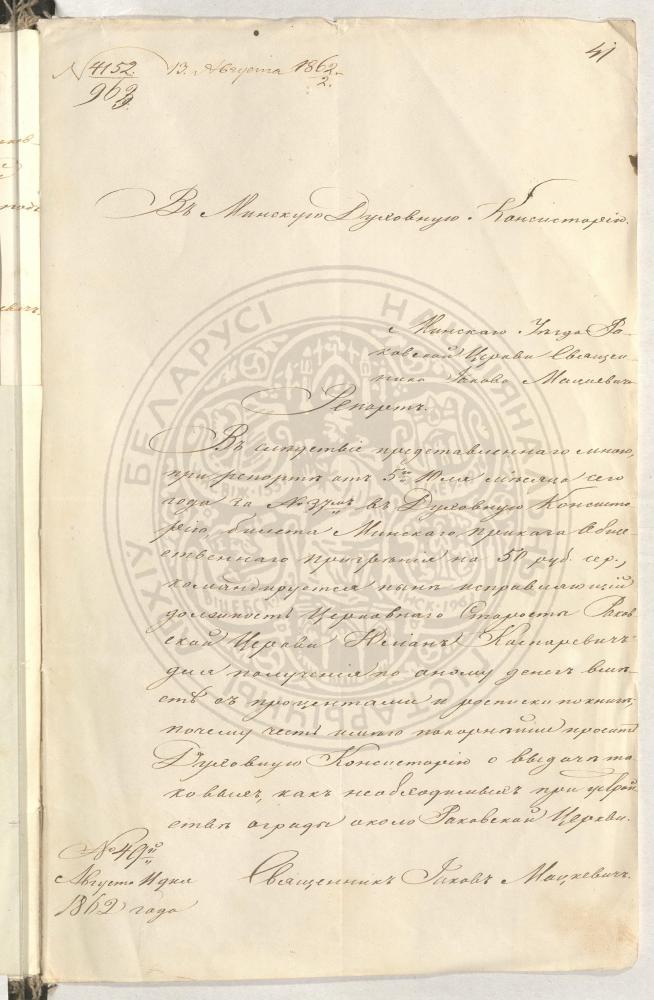 41
N 4152. 13. Августа 1862
969
Въ Минскую Духовную Консисторію.
Минскаго Уѣзда Ра-
ковской Церкви Священ-
ника Іакова Мацкевича
Репортъ.
Въ слѣдствіе представленнаго мною,
при репортѣ отъ 5го Юля мѣсяца сего
года за № 37мъ въ Духовную Консисто-
рію, билета Минскаго приказа Обще-
ственнаго призрѣнія на 50 руб. сер.,
командируется нынѣ исправляющій
должность Церковнаго Старосты Раков-
ской Церкви Юліанъ Каспаревичъ
для полученія по оному денегъ вмѣ-
стѣ съ процентами и росписки по книгѣ;
почему честь имѣю покорнѣйше просить
Духовную Консисторію о выдачѣ та-
ковыхъ, какъ необходимыхъ при устрой-
ствѣ ограды около Раковской Церкви.
Священникъ Іаковъ Мацкевичъ.
№ 49й
Августа 11 дня
1862 года
НАЦЫЯНАЛЬНЫ ГІСТАРЫЧНЫ АРХІЎ БЕЛАРУСІ